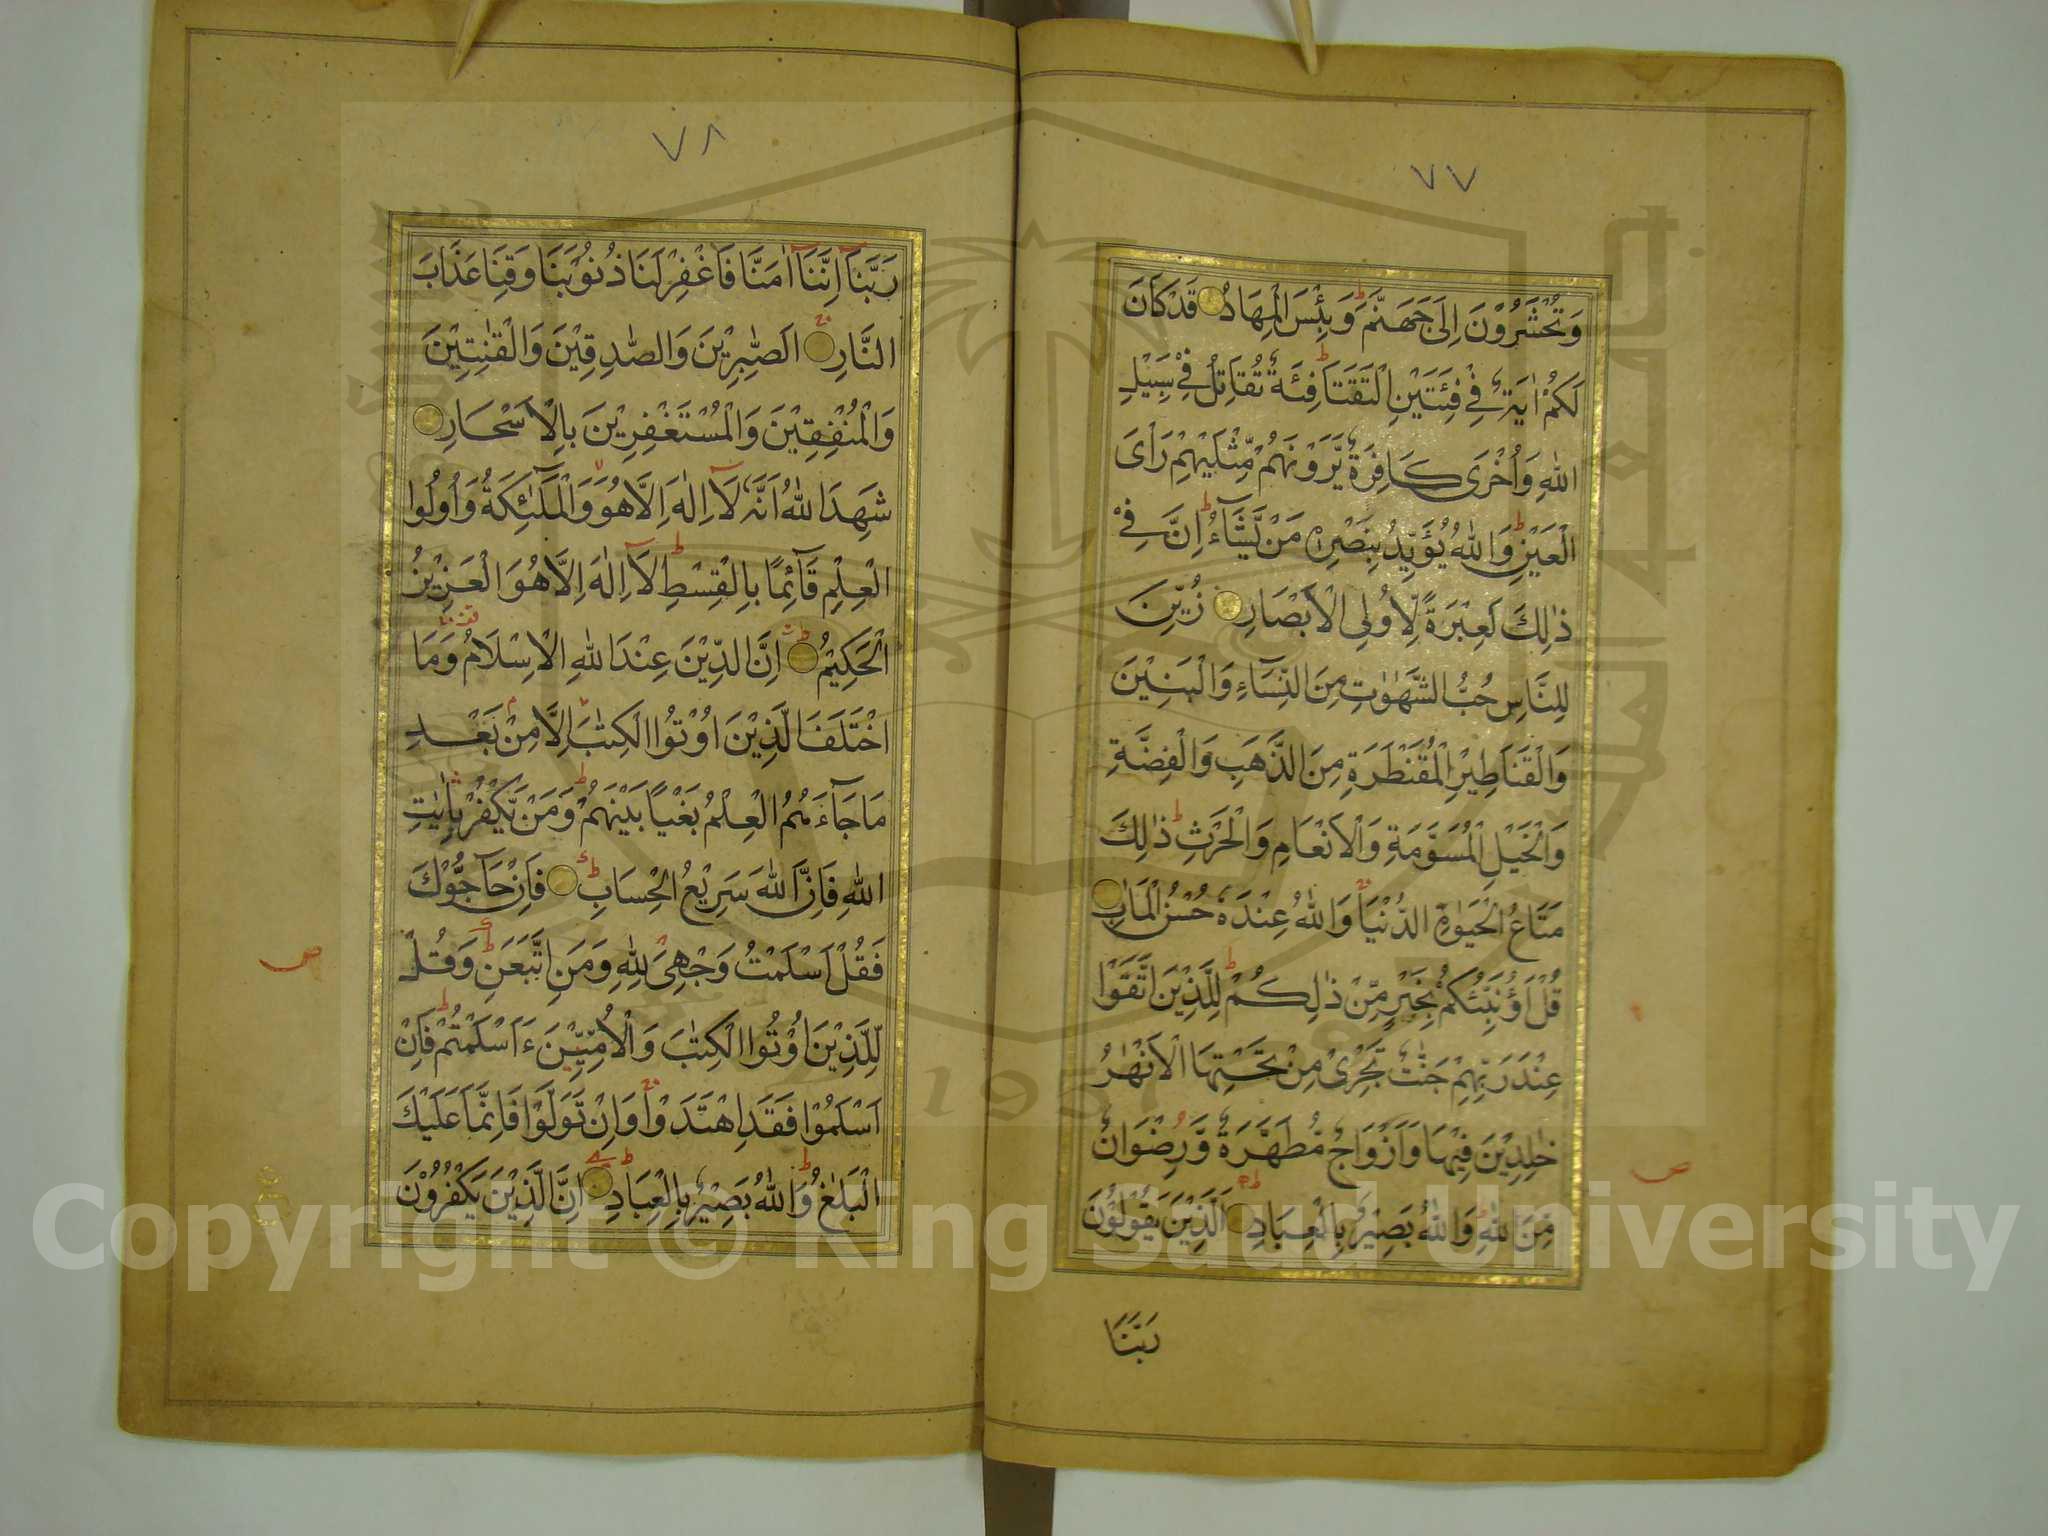 ٧٧
وَتُحْشَرُوْنَ اِلَى جَهَنَّمَ وَبِئْسَ الْمِهَادُ قَدْ كَانَ
لَكُمْ اٰيَةٌ فِيْ فِئَتَيْنِ الْتَقَتَا فِئَةٌ تُقَاتِلُ فِيْ سَبِيْلِ
اللّٰهِ وَاُخْرَى كَافِرَةٌ يَّرَوْنَهُمْ مِّثْلَيْهِمْ رَاْىَ
الْعَيْنِ وَاللّٰهُ يُؤَيِّدُ بِنَصْرِهٖ مَنْ يَّشَآءُ اِنَّ فِيْ
ذٰلِكَ لَعِبْرَةً لِّاُولِى الْاَبْصَارِ زُيِّنَ
لِلنَّاسِ حُبُّ الشَّهَوٰتِ مِنَ النِّسَآءِ وَالْبَنِيْنَ
وَالْقَنَاطِيْرِ الْمُقَنْطَرَةِ مِنَ الذَّهَبِ وَالْفِضَّةِ
وَالْخَيْلِ الْمُسَوَّمَةِ وَالْاَنْعَامِ وَالْحَرْثِ ذٰلِكَ
مَتَاعُ الْحَيٰوةِ الدُّنْيَا وَاللّٰهُ عِنْدَهٗ حُسْنُ الْمَاٰبِ
قُلْ اَؤُنَبِّئُكُمْ بِخَيْرٍ مِّنْ ذٰلِكُمْ لِلَّذِيْنَ اتَّقَوْا
عِنْدَ رَبِّهِمْ جَنّٰتٌ تَجْرِىْ مِنْ تَحْتِهَا الْاَنْهٰرُ
خٰلِدِيْنَ فِيْهَا وَاَزْوَاجٌ مُّطَهَّرَةٌ وَّرِضْوَانٌ
مِّنَ اللّٰهِ وَاللّٰهُ بَصِيْرٌ بِالْعِبَادِ اَلَّذِيْنَ يَقُوْلُوْنَ
رَبَّنَا
ص
٧٨
رَبَّنَآ اِنَّنَآ اٰمَنَّا فَاغْفِرْ لَنَا ذُنُوْبَنَا وَقِنَا عَذَابَ
النَّارِ اَلصّٰبِرِيْنَ وَالصّٰدِقِيْنَ وَالْقٰنِتِيْنَ
وَالْمُنْفِقِيْنَ وَالْمُسْتَغْفِرِيْنَ بِالْاَسْحَارِ
شَهِدَ اللّٰهُ اَنَّهٗ لَآ اِلٰهَ اِلَّا هُوَ وَالْمَلٰٓئِكَةُ وَاُولُوا
الْعِلْمِ قَآئِمًا بِالْقِسْطِ لَآ اِلٰهَ اِلَّا هُوَ الْعَزِيْزُ
الْحَكِيْمُ اِنَّ الدِّيْنَ عِنْدَ اللّٰهِ الْاِسْلَامُ وَمَا
اخْتَلَفَ الَّذِيْنَ اُوْتُوا الْكِتٰبَ اِلَّا مِنْ بَعْدِ
مَا جَآءَهُمُ الْعِلْمُ بَغْيًا بَيْنَهُمْ وَمَنْ يَّكْفُرْ بِاٰيٰتِ
اللّٰهِ فَاِنَّ اللّٰهَ سَرِيْعُ الْحِسَابِ فَاِنْ حَآجُّوْكَ
فَقُلْ اَسْلَمْتُ وَجْهِىَ لِلّٰهِ وَمَنِ اتَّبَعَنِ وَقُلْ
لِّلَّذِيْنَ اُوْتُوا الْكِتٰبَ وَالْاُمِّيّٖنَ ءَاَسْلَمْتُمْ فَاِنْ
اَسْلَمُوْا فَقَدِ اهْتَدَوْا وَاِنْ تَوَلَّوْا فَاِنَّمَا عَلَيْكَ
الْبَلٰغُ وَاللّٰهُ بَصِيْرٌ بِالْعِبَادِ اِنَّ الَّذِيْنَ يَكْفُرُوْنَ
ص
1957
Copyright © King Saud University